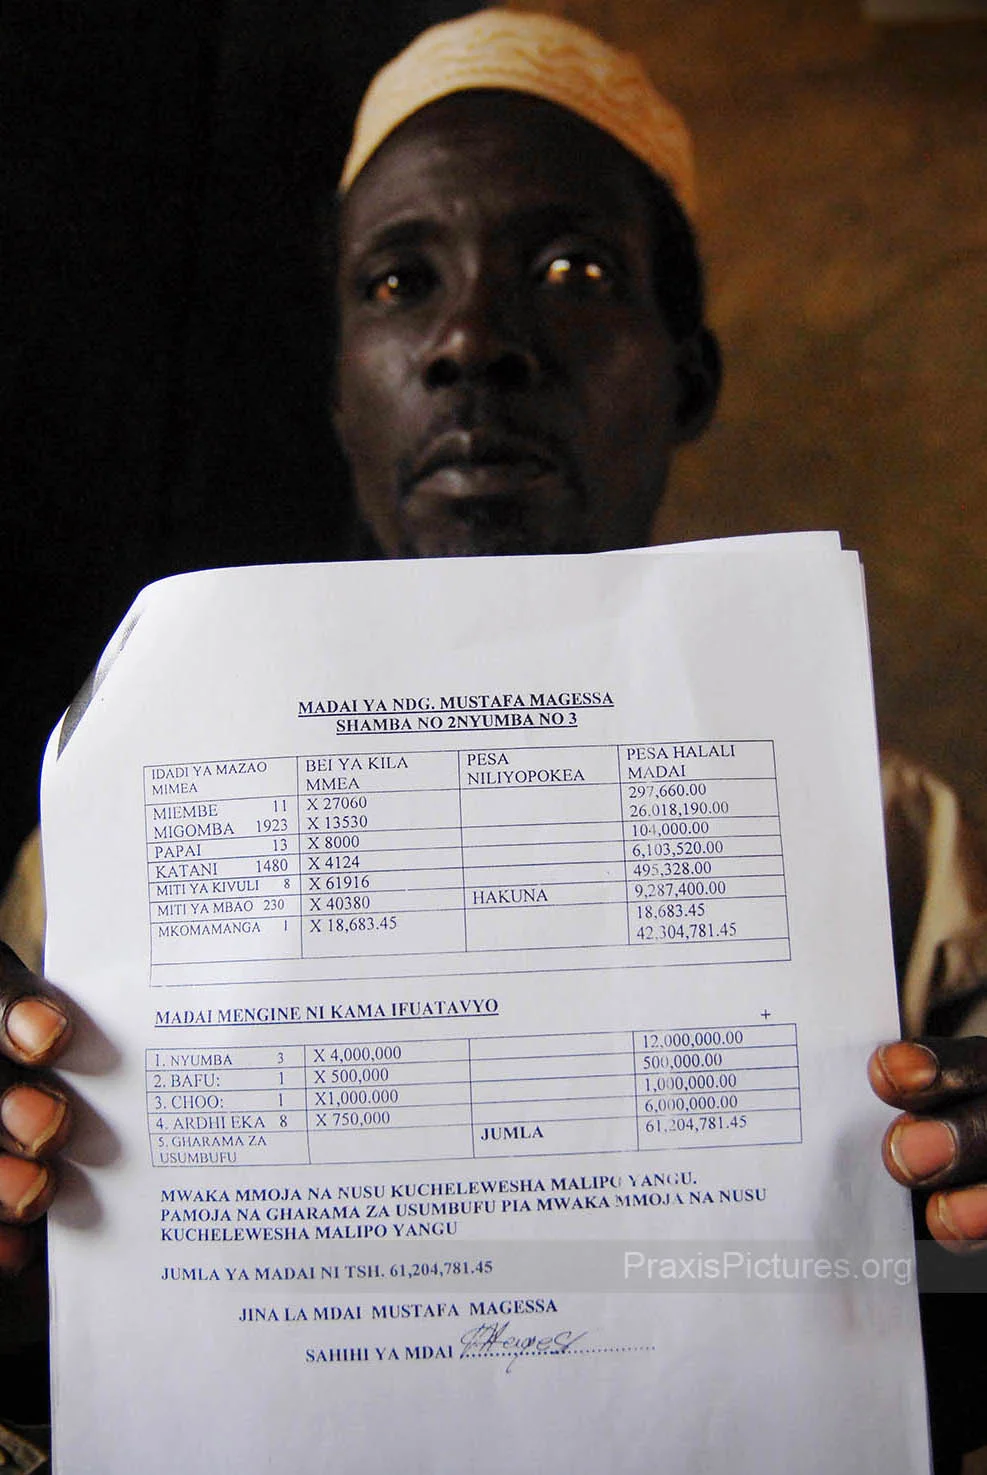 MADAI YA NDG. MUSTAFA MAGESSA
SHAMBA NO 2NYUMBA NO 3
IDADI YA MAZAO MIMEA BEI YA KILA MMEA PESA NILIYOPOKEA PESA HALALI MADAI
MIEMBE 11 X 27060 297,660.00
MIGOMBA 1923 X 13530 26,018,190.00
PAPAI 13 X 8000 104,000.00
KATANI 1480 X 4124 6,103,520.00
MITI YA KIVULI 8 X 61916 495,328.00
MITI YA MBAO 230 X 40380 HAKUNA 9,287,400.00
MKOMAMANGA 1 X 18,683.45 18,683.45
42,304,781.45
MADAI MENGINE NI KAMA IFUATAVYO
+
1. NYUMBA 3 X 4,000,000 12,000,000.00
2. BAFU: 1 X 500,000 500,000.00
3. CHOO: 1 X1,000.000 1,000,000.00
4. ARDHI EKA 8 X 750,000 6,000,000.00
5. GHARAMA ZA USUMBUFU JUMLA 61,204,781.45
MWAKA MMOJA NA NUSU KUCHELEWESHA MALIPU YANGU.
PAMOJA NA GHARAMA ZA USUMBUFU PIA MWAKA MMOJA NA NUSU
KUCHELEWESHA MALIPO YANGU
JUMLA YA MADAI NI TSH. 61,204,781.45
JINA LA MDAI MUSTAFA MAGESSA
SAHIHI YA MDAI
PraxisPictures.org